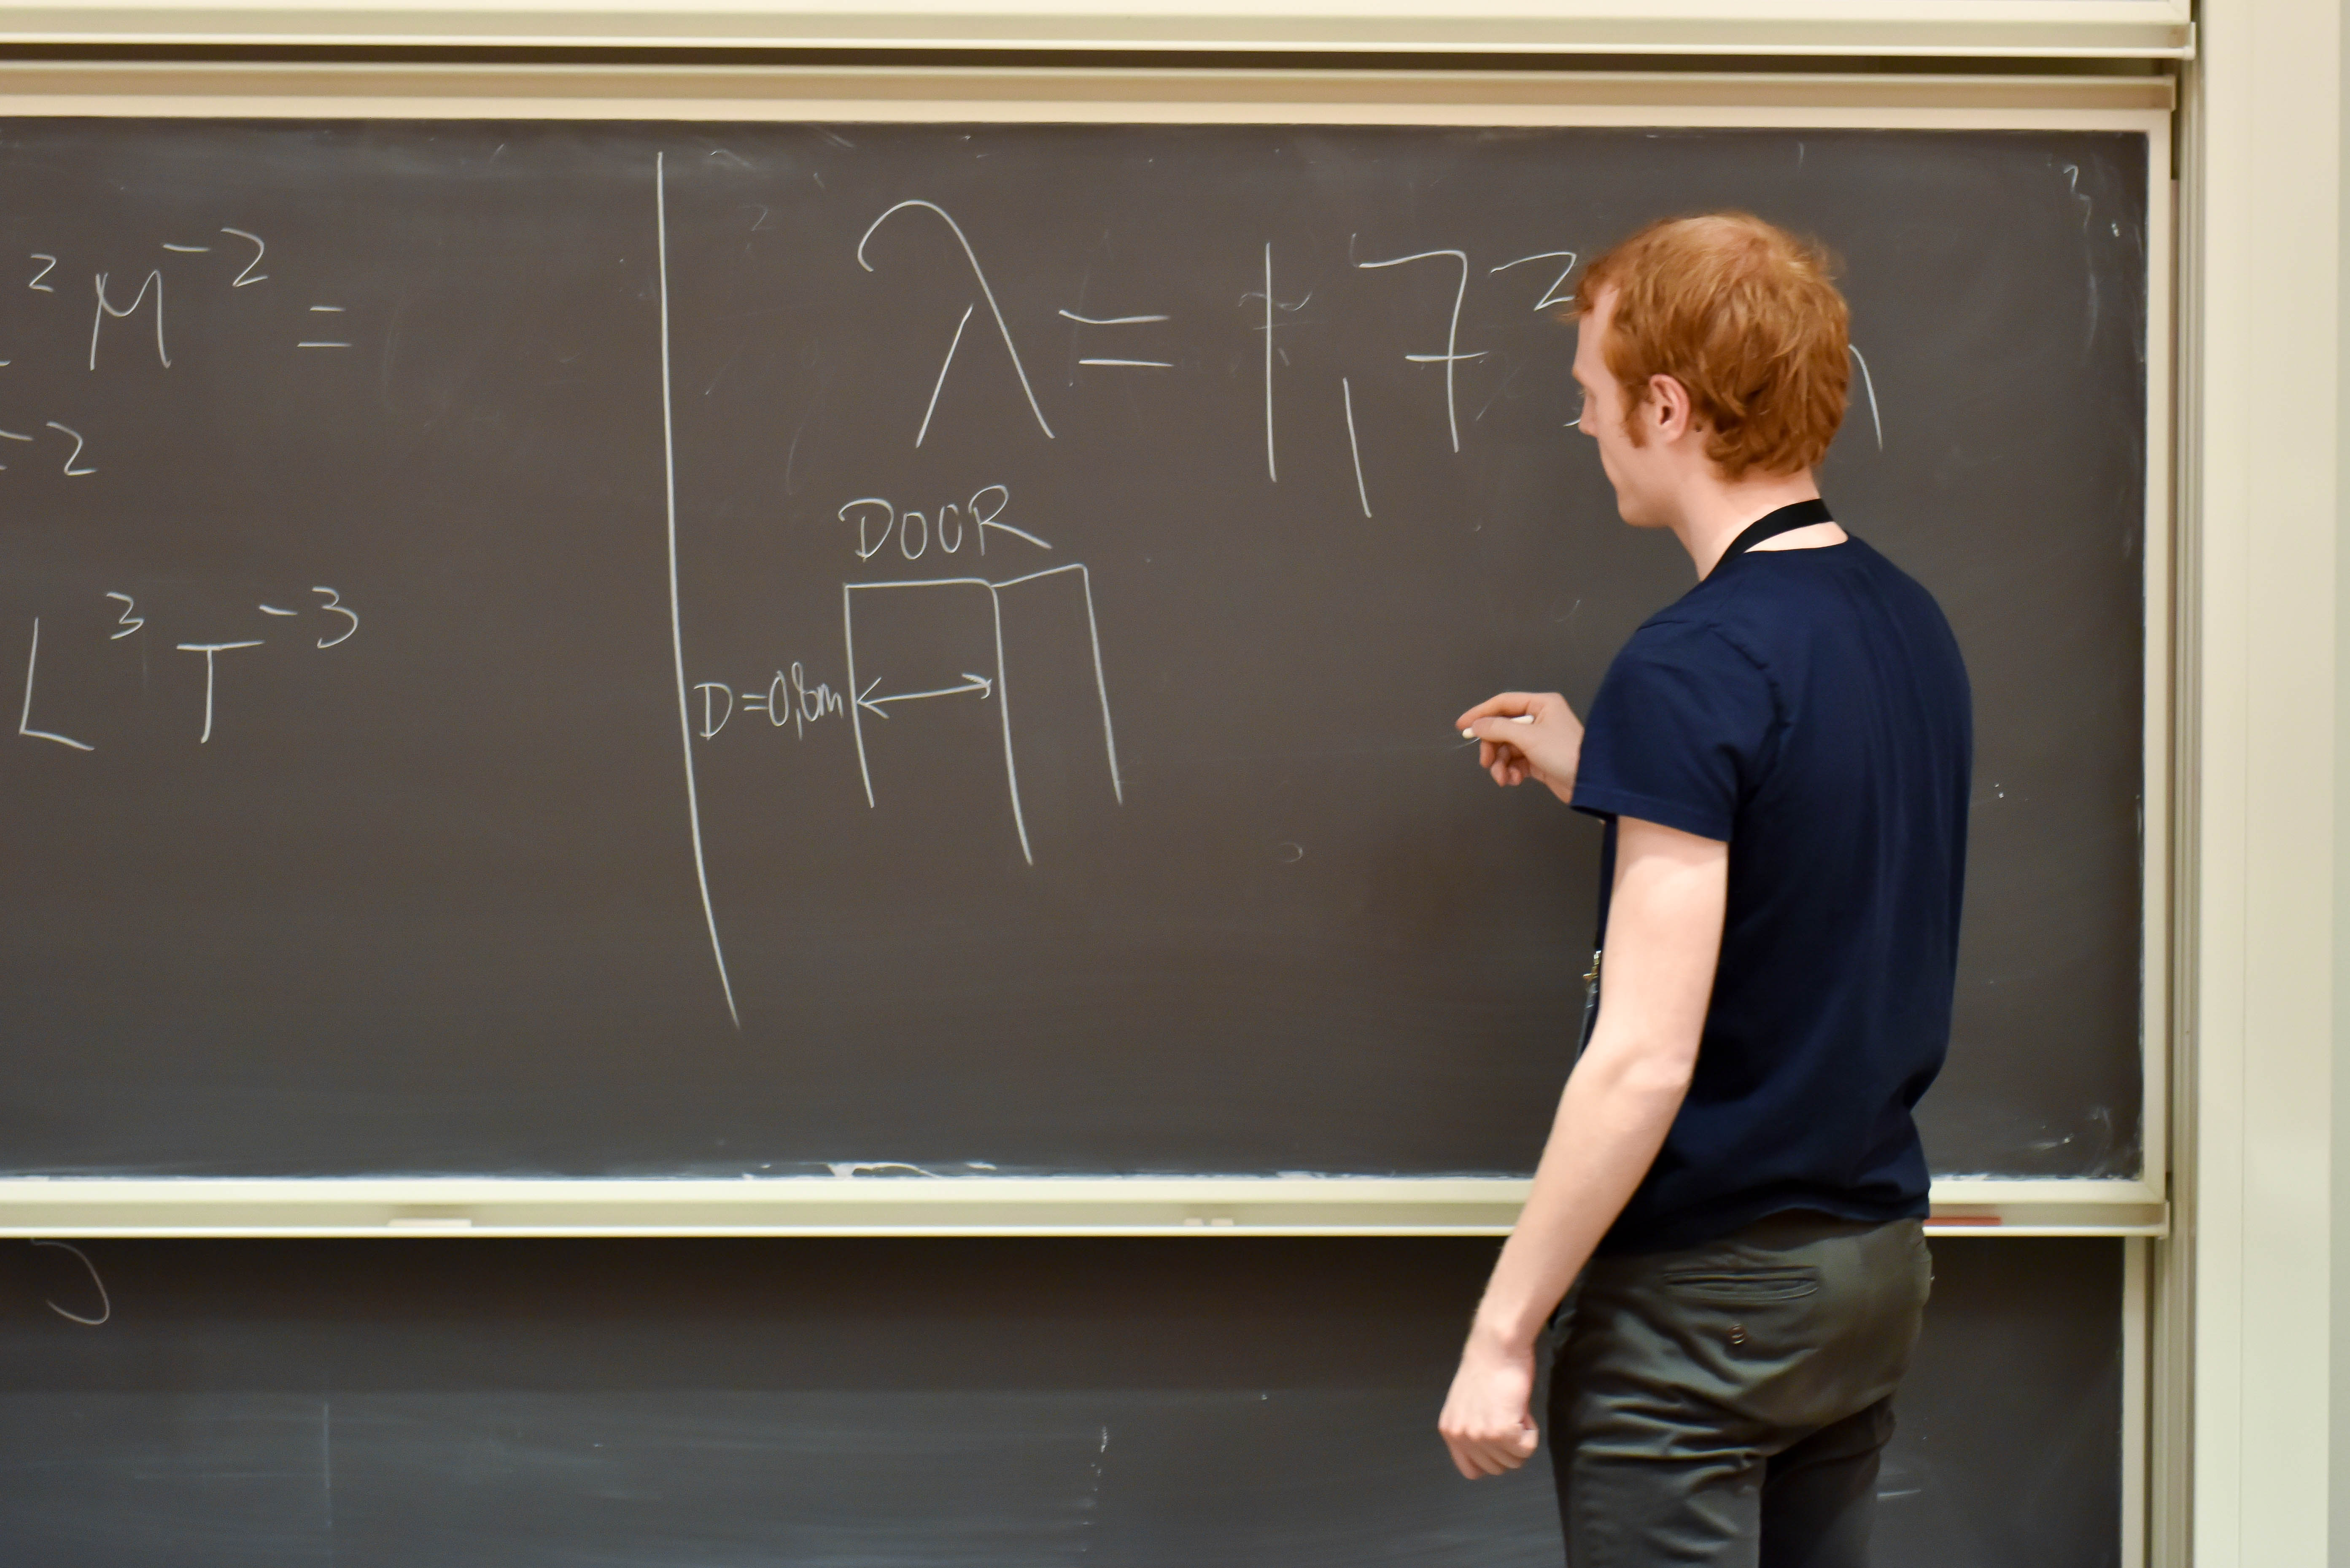 ² M⁻² =
⁻2
L³ T⁻³
λ = 1,7
DOOR
D = 0,8m